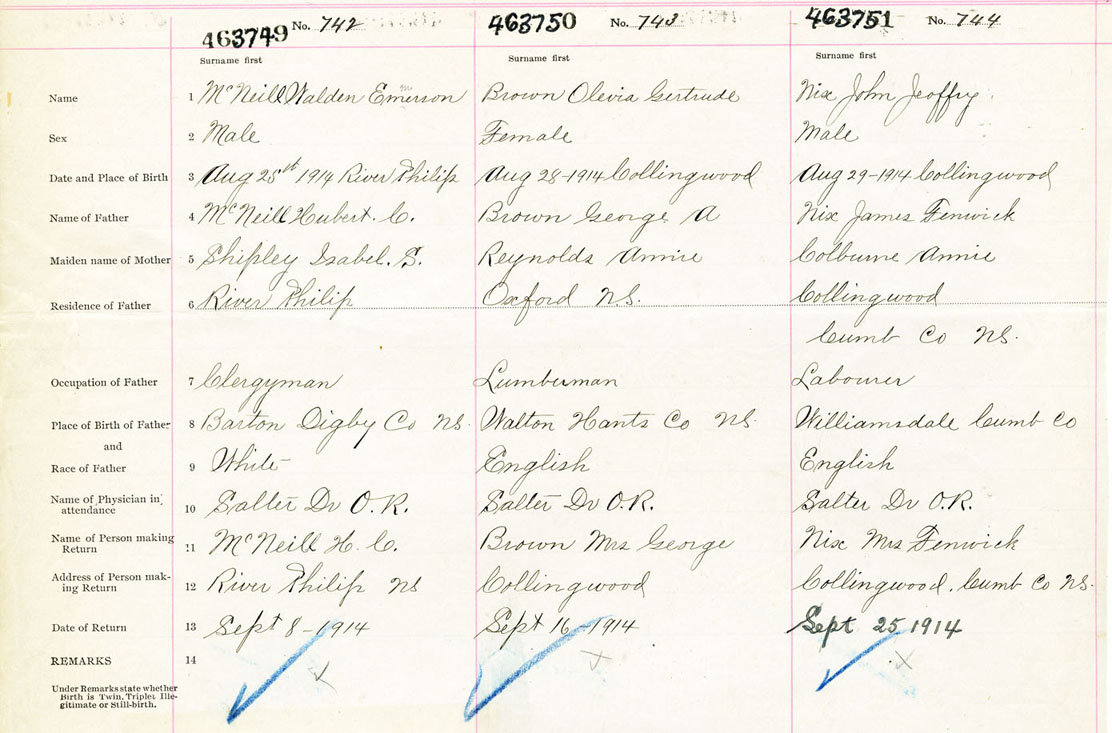 463749 No. 742 463750 No. 743 463751 No. 744
Surname first Surname first Surname first
Name 1 McNeill Walden Emerson Brown Olevia Gertrude Nix John Jeoffry.
Sex 2 Male Female Male
Date and Place of Birth 3 Aug 25th 1914 River Philip Aug 28-1914 Collingwood Aug 29-1914 Collingwood
Name of Father 4 McNeill Hubert. C. Brown George A Nix James Fenwick
Maiden name of Mother 5 Shipley Isabel. S. Reynolds Annie Colburne Annie
Residence of Father 6 River Philip Oxford N.S. Collingwood
Cumb Co NS.
Occupation of Father 7 Clergyman Lumberman Labourer
Place of Birth of Father 8 Barton Digby Co NS. Walton Hants Co NS. Williamsdale Cumb Co
and
Race of Father 9 White English English
Name of Physician in
attendance 10 Salter Dr O.R. Salter Dr O.R. Salter Dr O.R.
Name of Person making
Return 11 McNeill H. C. Brown Mrs George Nix Mrs Fenwick
Address of Person mak-
ing Return 12 River Philip NS Collingwood Collingwood. Cumb Co NS.
Date of Return 13 Sept 8-1914 Sept 16-1914 Sept 25 1914
REMARKS 14
Under Remarks state whether
Birth is Twin, Triplet Ille-
gitimate or Still-birth.